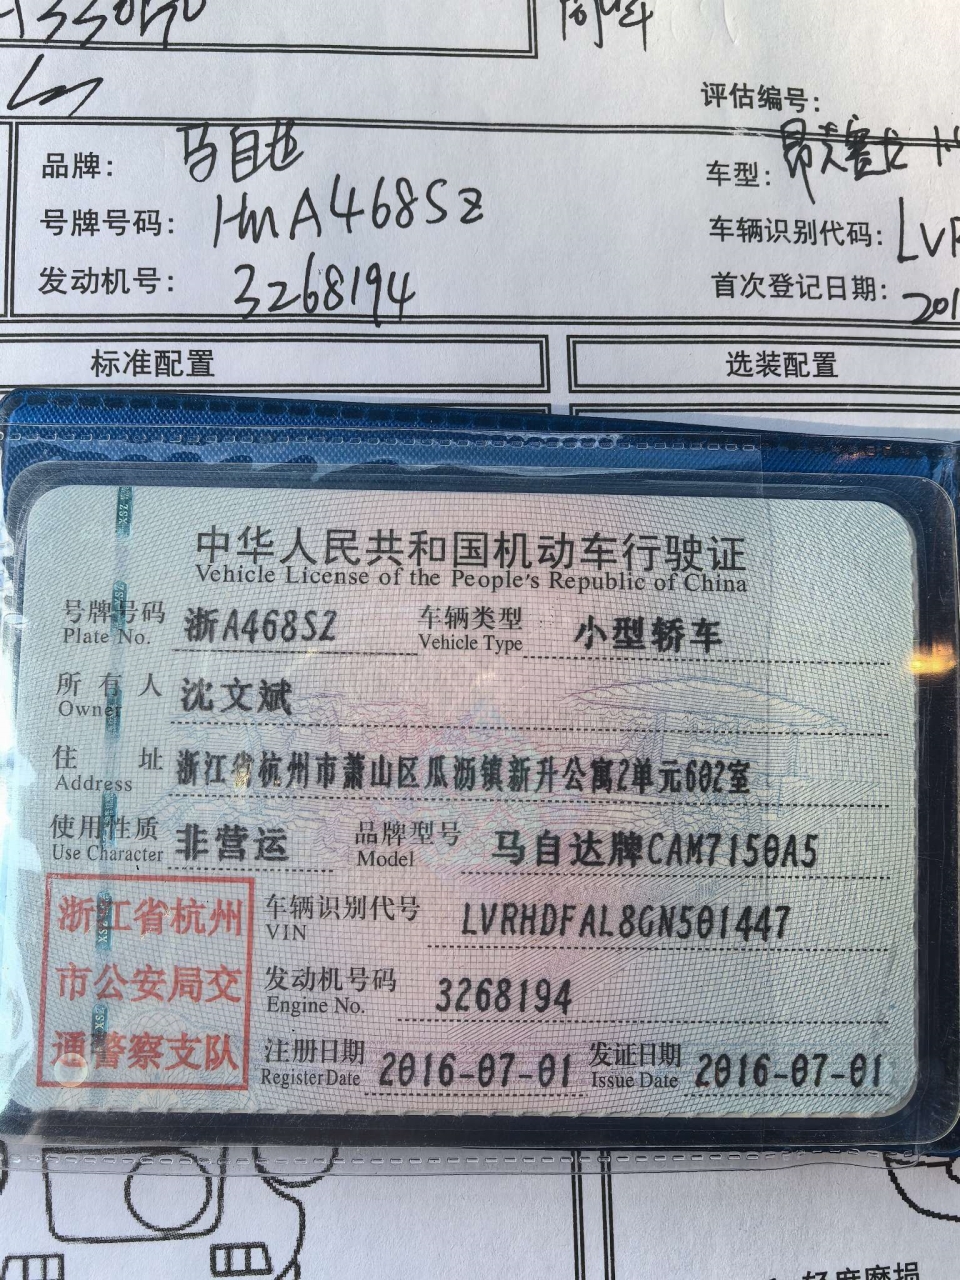 评估编号：
品牌： 马自达
车型： 昂克赛拉
号牌号码： A468SZ
车辆识别代码： LVR
发动机号： 3268194
首次登记日期： 201
标准配置
选装配置
中华人民共和国机动车行驶证
Vehicle License of the People's Republic of China
号牌号码 浙A468SZ 车辆类型 小型轿车
Plate No. Vehicle Type
所有人 沈文斌
Owner
住址 浙江省杭州市萧山区瓜沥镇新升公寓2单元602室
Address
使用性质 非营运 品牌型号 马自达牌CAM7150A5
Use Character Model
浙江省杭州
市公安局交
通警察支队
车辆识别代号 LVRHDFAL8GN501447
VIN
发动机号码 3268194
Engine No.
注册日期 2016-07-01 发证日期 2016-07-01
Register Date Issue Date
轻度磨损